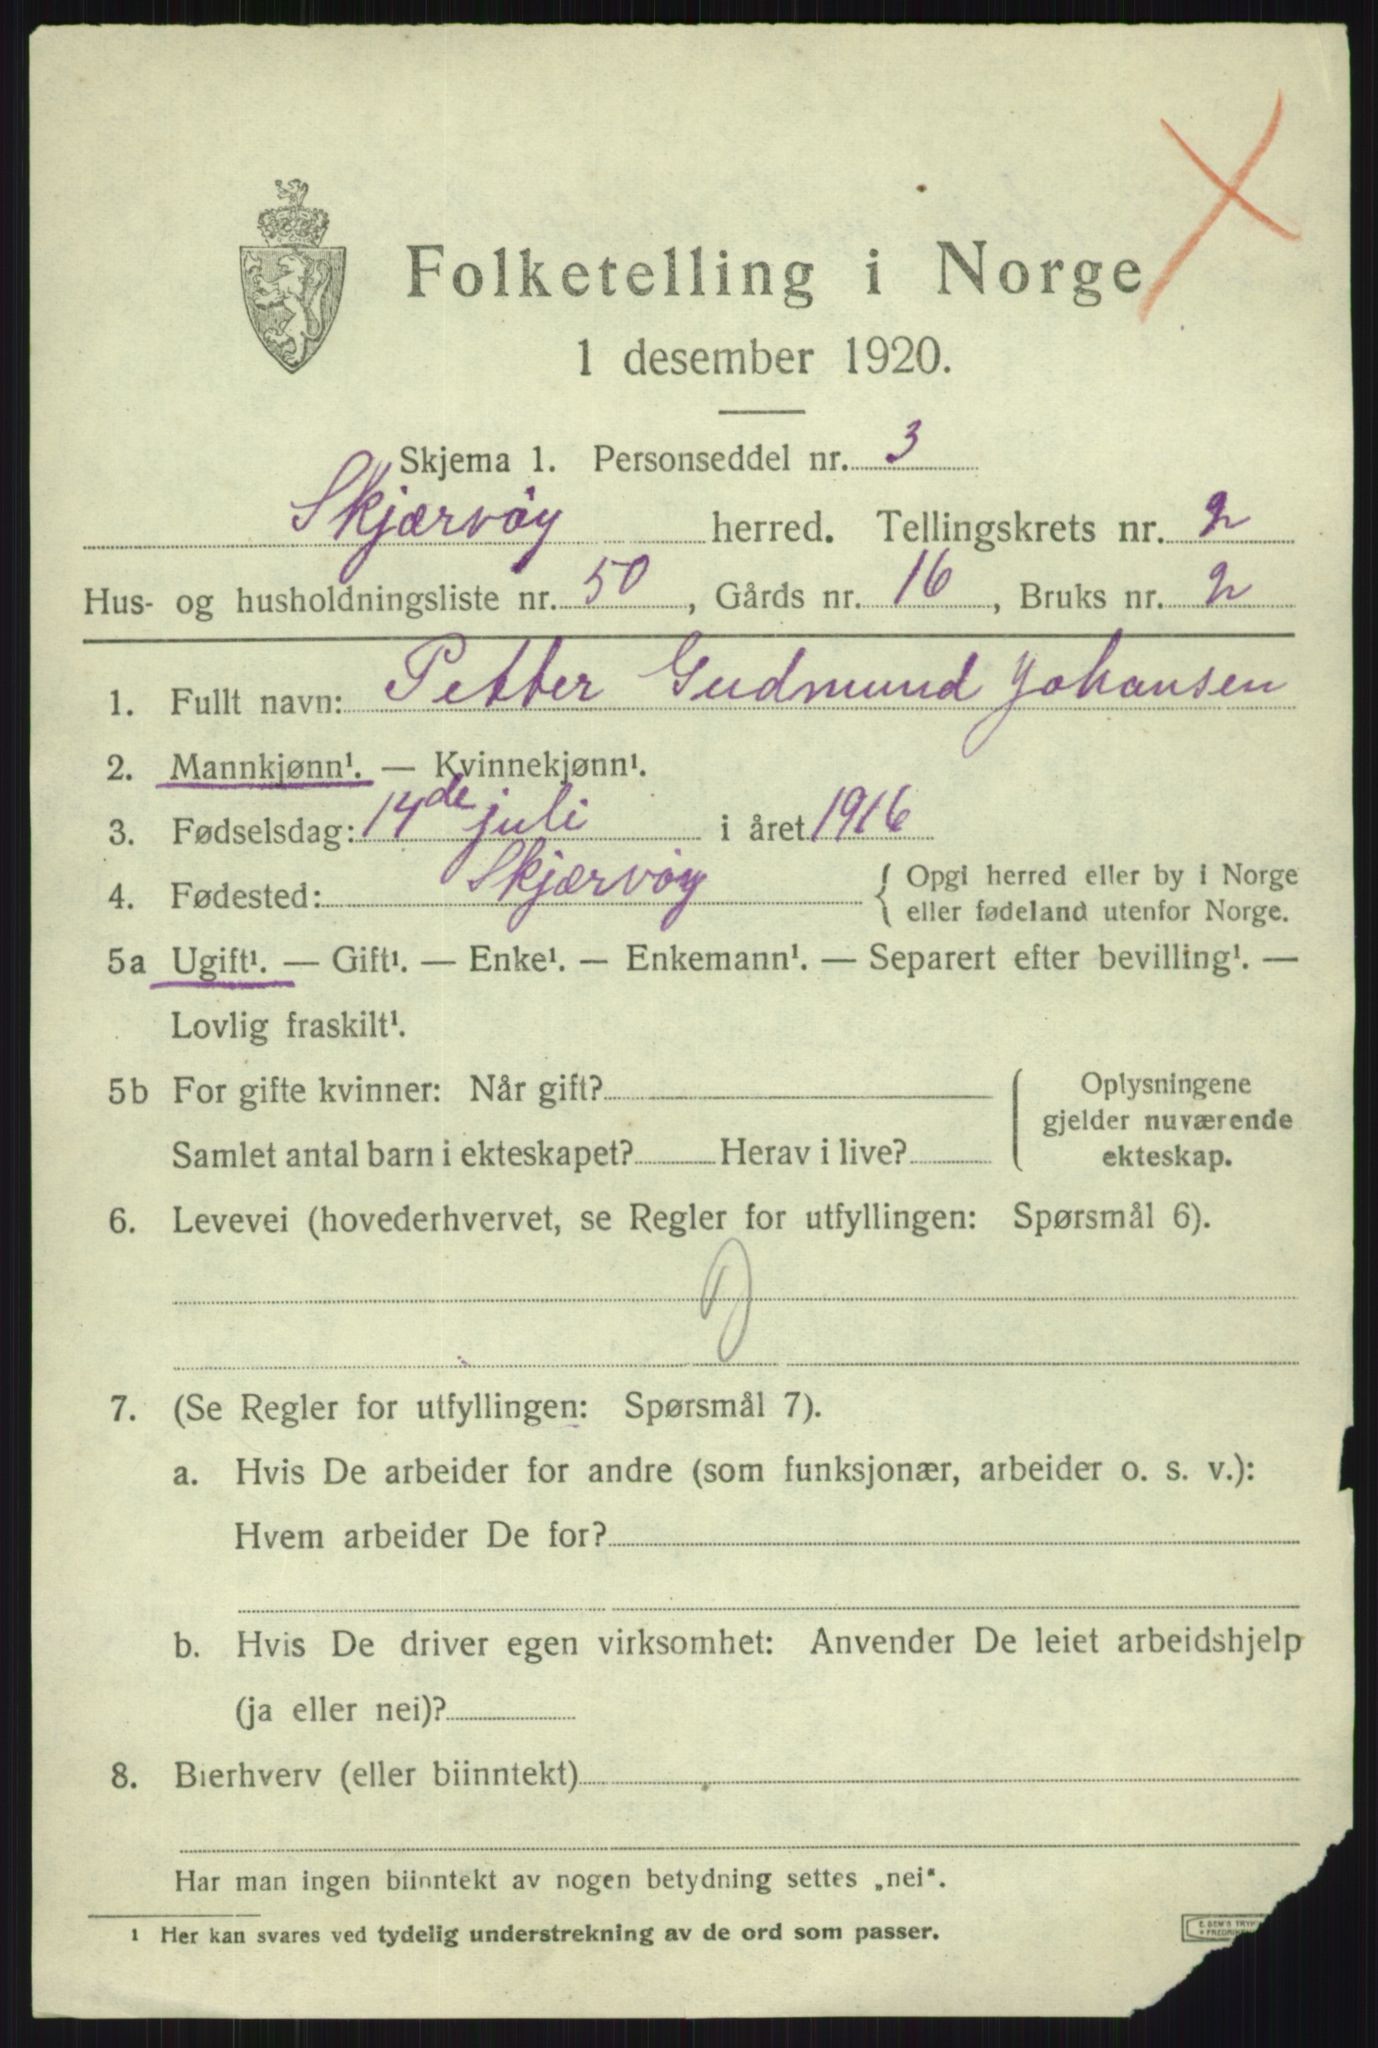 Folketelling i Norge
1 desember 1920.
Skjema 1. Personseddel nr. 3
Skjærvöy herred. Tellingskrets nr. 2
Hus- og husholdningsliste nr. 50, Gårds nr. 16, Bruks nr. 2
1. Fullt navn: Petter Gudmund Johansen
2. Mannkjønn¹. — Kvinnekjønn¹.
3. Fødselsdag: 14de juli i året 1916
4. Fødested: Skjærvöy { Opgi herred eller by i Norge
eller fødeland utenfor Norge.
5a Ugift¹. — Gift¹. — Enke¹. — Enkemann¹. — Separert efter bevilling¹. —
Lovlig fraskilt¹.
5b For gifte kvinner: Når gift? { Oplysningene
gjelder nuværende
Samlet antal barn i ekteskapet? Herav i live? ekteskap.
6. Levevei (hovederhvervet, se Regler for utfyllingen: Spørsmål 6).
7. (Se Regler for utfyllingen: Spørsmål 7).
a. Hvis De arbeider for andre (som funksjonær, arbeider o. s. v.):
Hvem arbeider De for?
b. Hvis De driver egen virksomhet: Anvender De leiet arbeidshjelp
(ja eller nei)?
8. Bierhverv (eller biinntekt)
Har man ingen biinntekt av nogen betydning settes „nei“.
¹ Her kan svares ved tydelig understrekning av de ord som passer.